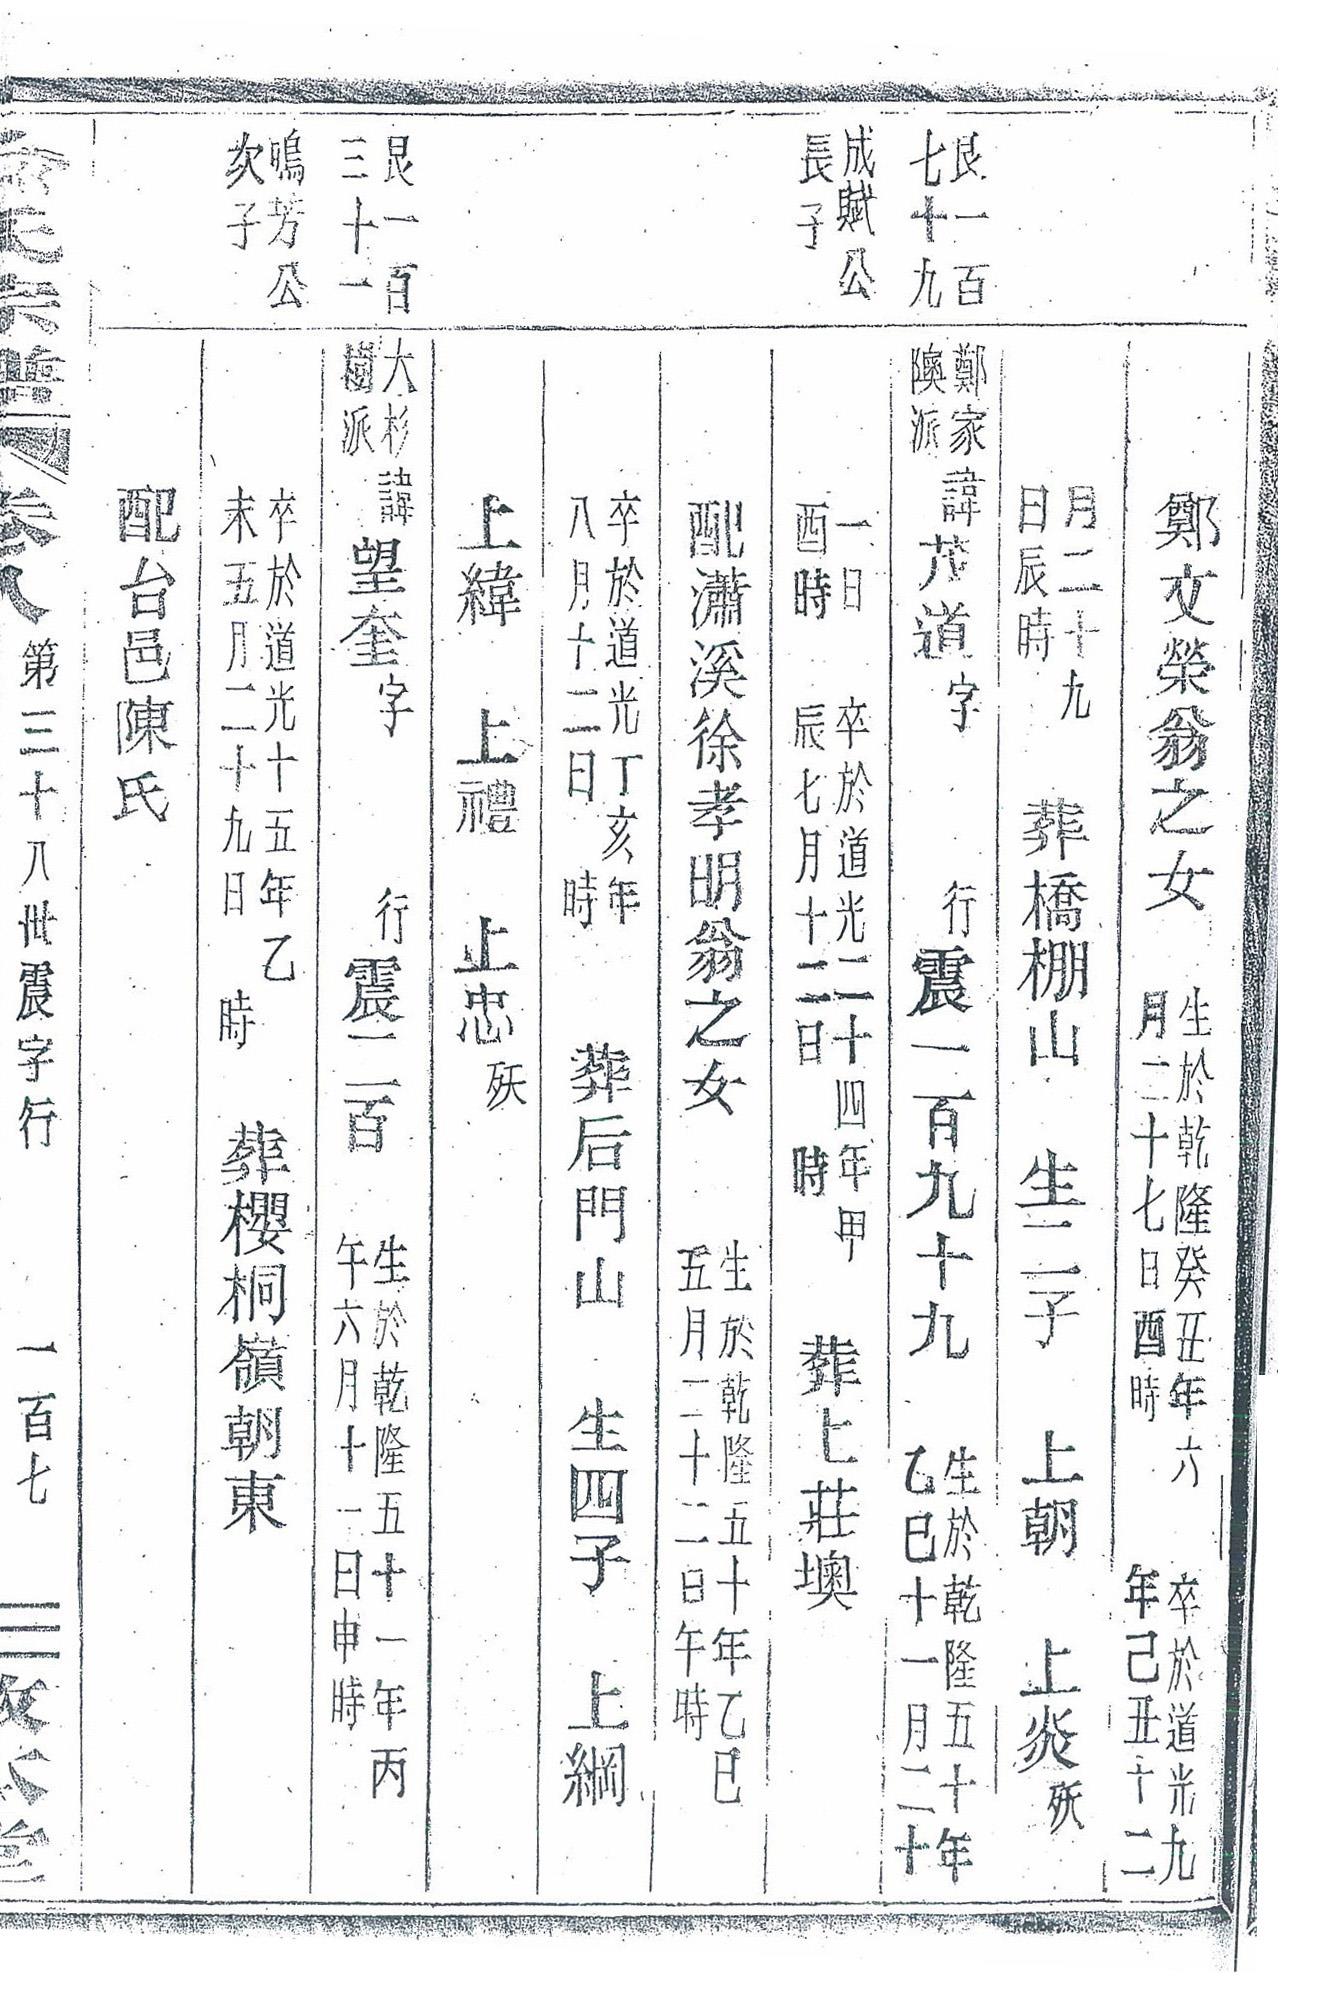 鄭文榮翁之女
生於乾隆癸丑年六
月二十七日酉時
卒於道光九
年己丑十二
月二十九
日辰時
葬橋棚山 生二子 上朝 上炎
殀
艮一百
七十九
成賦公
長子
鄭家
隩派
諱茂道字 行震一百九十九
生於乾隆五十年
乙巳十一月二十
一日
酉時
卒於道光二十四年甲
辰七月十二日 時
葬上莊墺
配瀟溪徐孝明翁之女
生於乾隆五十年乙巳
五月二十二日午時
卒於道光丁亥年
八月十二日 時
葬后門山 生四子 上綱
上緯 上禮 上忠
殀
艮一百
三十一
鳴芳公
次子
大杉
樹派
諱望奎字 行震二百
生於乾隆五十一年丙
午六月十一日申時
卒於道光十五年乙
未五月二十九日 時
葬櫻桐嶺朝東
配台邑陳氏
氏宗譜 卷八 第三十八世震字行 一百七